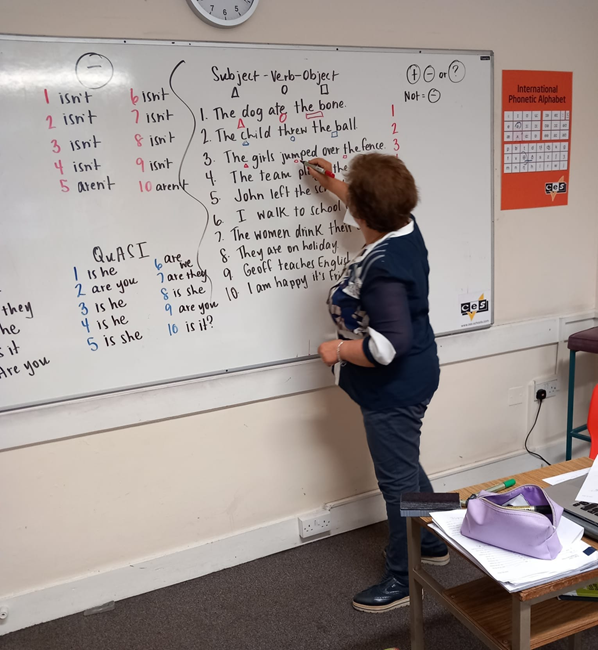 7 6 5
−
1 isn't
2 isn't
3 isn't
4 isn't
5 aren't
6 isn't
7 isn't
8 isn't
9 isn't
10 aren't
QUASI
1 is he
2 are you
3 is he
4 is he
5 is she
6 are we
7 are they
8 is she
9 are you
10 is it?
they
he
it
Are you
Subject - Verb - Object
1. The dog ate the bone.
2. The child threw the ball.
3. The girls jumped over the fence.
4. The team the
5. John left the
6. I walk to school
7. The women drink their
8. They are on holiday
9. Geoff teaches English
10. I am happy it's
1
2
3
+ − or ?
Not = −
International
Phonetic Alphabet
ces
ces